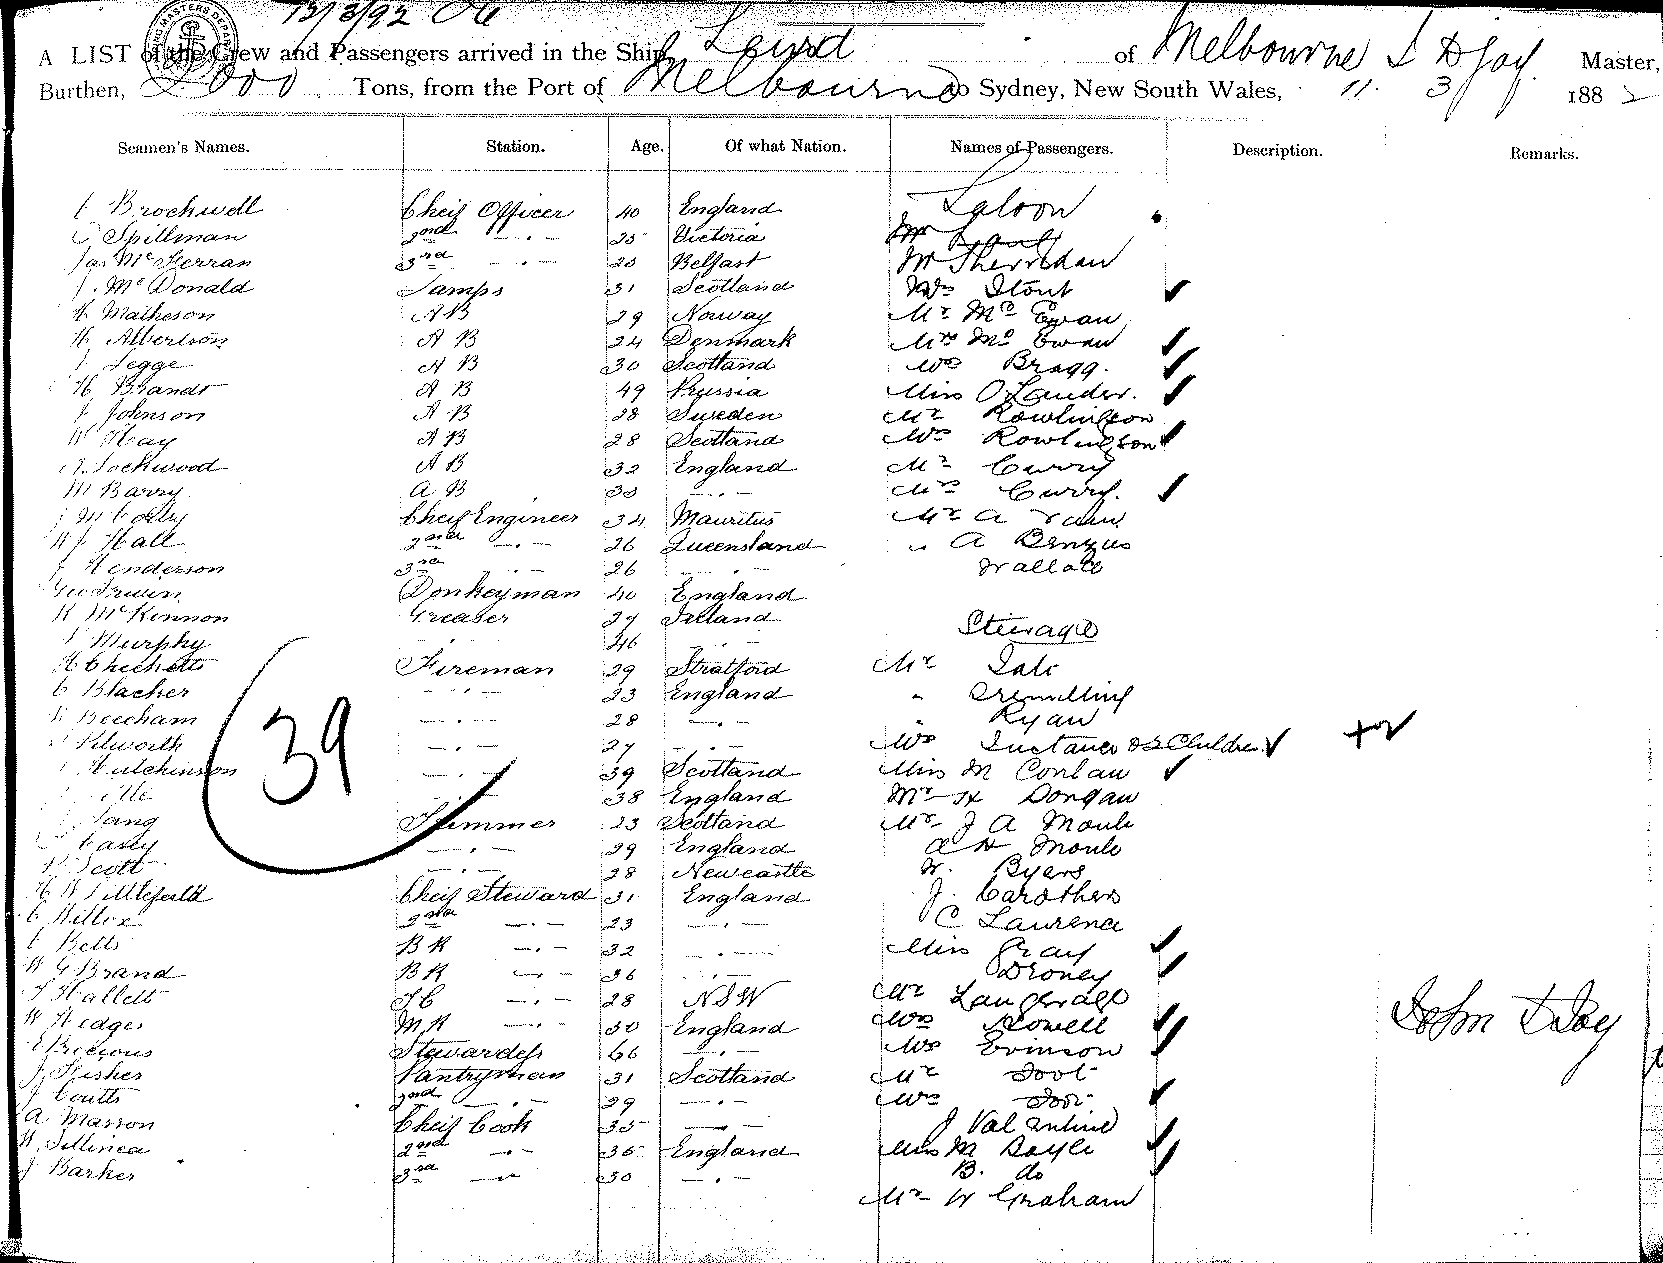 13/3/92
A LIST of the Crew and Passengers arrived in the Ship of Melbourne J D Joy Master,
Burthen, 2000 Tons, from the Port of Melbourne to Sydney, New South Wales, 11 3 188 2
Seamen's Names. Station. Age. Of what Nation. Names of Passengers. Description. Remarks.
Brockwell Cheif Officer 40 England Saloon
C Spillman 2nd —.— 25 Victoria Mr
Jas McFerran 3rd —.— 25 Belfast Mr Sherridan
J. McDonald Lamps 31 Scotland Mrs Stout
Matheson A B 29 Norway Mr Mc Ewan
Albertson A B 24 Denmark Mrs Mc Ewan
J Legge A B 30 Scotland Mrs Bragg.
H Brandt A B 49 Prussia Miss O Lauder.
J Johnson A B 28 Sweden Mr Rowlingson
W Hay A B 28 Scotland Mrs Rowlingson
Lockwood A B 32 England Mr Curry
M Barry A B 30 —.— Mrs Curry.
Cheif Engineer 34 Mauritus Mr A
W J Hall 2nd —.— 26 Queensland " A
J Henderson 3rd —.— 26 —.— Wallace
Donkeyman 40 England
McKinnon Greaser 27 Ireland Steerage
Murphy —.— 46 —.—
Fireman 29 Stratford Mr
C Blacher —.— 23 England "
Beecham —.— 28 —.— " Ryan
Pilworth —.— 27 —.— Mrs & 2 Children
Hutchinson —.— 39 Scotland Miss M Conlan
39
38 England Mr H Dongan
Lang Trimmer 23 Scotland Mr J A Moule
Casey —.— 29 England A H Moule
Scott —.— 28 Newcastle W. Byers
H W Littlefeild Cheif Steward 31 England J. Carothers
C Willox 2nd —.— 23 —.— C Laurence
Betts B R —.— 32 —.— Miss Gray
W G Brand B R —.— 36 —.— Droney
Hallett F C —.— 28 N S W Mr
W Hedges M R —.— 30 England Mrs Howell
E Precious Stewardess 66 —.— Mrs Evinson
J Fisher Pantryman 31 Scotland Mr Foot
J Coutts 2nd —.— 29 —.— Mrs Foot
A Masson Cheif Cook 35 —.— J Valentine
2nd —.— 36 England Miss M Boyle
J Barker 3rd —.— 30 —.— B. do
Mr W Graham
John D Joy